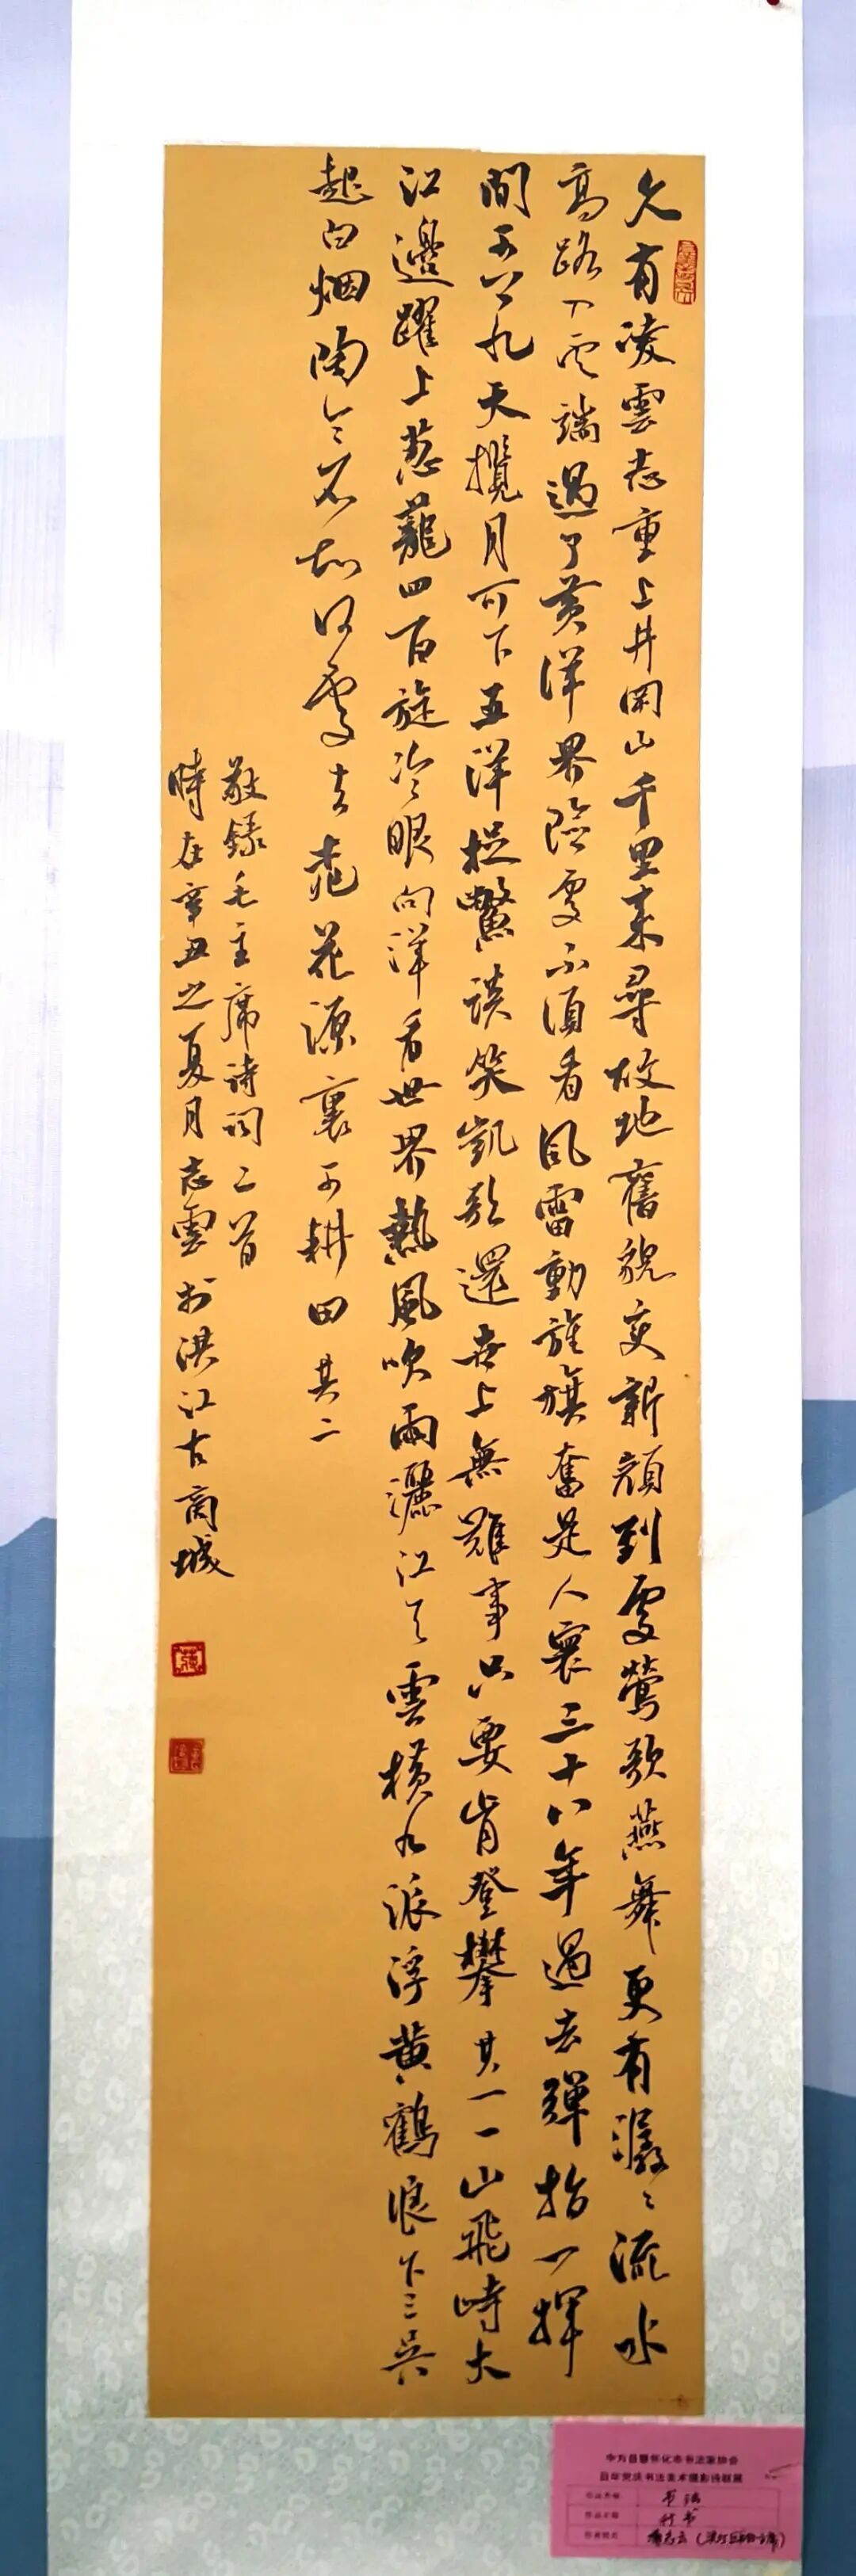 久有凌雲志重上井岡山千里來尋故地舊貌变新顏到處莺歌燕舞更有潺々流水
高路入雲端過了黄洋界險處不須看風雷動旌旗奮是人寰三十八年過去彈指一揮
間可上九天攬月可下五洋捉鱉談笑凱歌還世上無難事只要肯登攀其一一山飛峙大
江邊躍上葱蘢四百旋冷眼向洋看世界熱風吹雨灑江天雲橫九派浮黄鶴浪下三吳
起白烟陶令不知何處去桃花源裏可耕田其二
敬録毛主席詩詞二首
時在辛丑之夏月志雲於洪江古商城
中方县暨怀化市书法家协会
百年党庆书法美术摄影诗联展
书法
行书